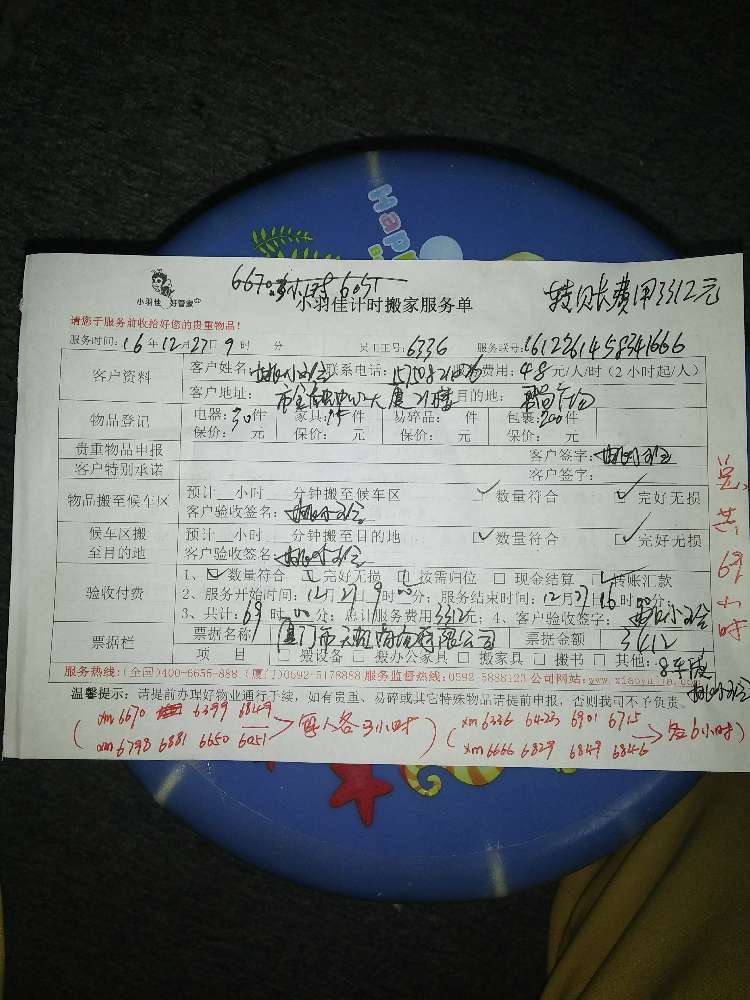 Happ
小羽佳 好管家
667
6051
小羽佳计时搬家服务单
转贝长费用3312元
请您于服务前收拾好您的贵重物品!
服务时间: 16年12月27日9时 分 员工工号: 6336 服务联号:
客户资料 客户姓名: 联系电话: 费用: 48元/人/时(2小时起/人)
客户地址: 大厦21楼 目的地:
物品登记 电器: 30件 家具: 件 易碎品: 件 包裹: 200件
保价: 元 保价: 元 保价: 元 保价: 元
贵重物品申报 客户签字:
客户特别承诺 客户签字:
物品搬至候车区 预计__小时__分钟搬至候车区 ✓数量符合 ☑完好无损
客户验收签名:
候车区搬至目的地 预计__小时__分钟搬至目的地 ☑数量符合 ☑完好无损
客户验收签名:
验收付费 1、☑数量符合 ☑完好无损 ☑按需归位 □现金结算 ☑转账汇款
2、服务开始时间: 12月27日9时00分; 服务结束时间: 12月27日16时00分;
3、共计: 69时00分; 总计服务费用3312元; 4、客户验收签字:
票据栏 票据名称 厦门市天 有限公司 票据金额 3412
项目 □搬设备 □搬办公家具 □搬家具 □搬书 □其他: 8车
服务热线:(全国)400-6655-888 (厦门)0592-5178898 服务监督热线:0592-5888123 公司网站:www.xiaoyujia.com
温馨提示: 请提前办理好物业通行手续, 如有贵重、易碎或其它特殊物品请提前申报, 否则我司不予负责。
总共69小时
(xm 6670 6399 6849
xm 6798 6881 6650 6051 → 每人各3小时)
(xm 6336 6423 6901 6715
xm 6666 6829 6849 6846 → 各6小时)